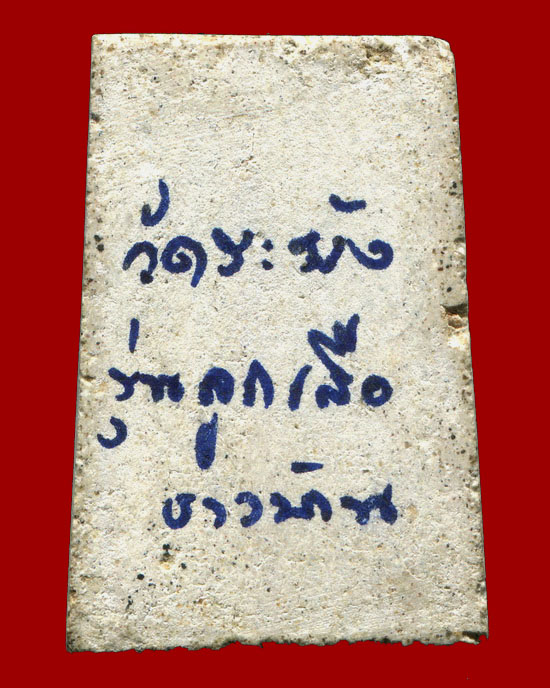 วัดระฆัง
รุ่นลูกเสือ
ชาวบ้าน